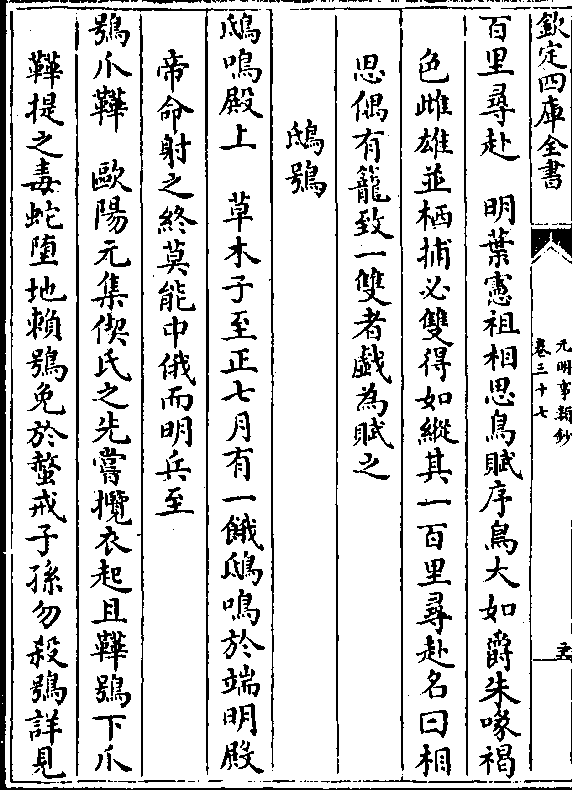 欽定四庫全書
元明事類鈔
卷三十七
百里尋赴　明葉憲祖相思鳥賦序鳥大如爵朱喙褐
色雌雄並栖捕必雙得如縱其一百里尋赴名曰相
思偶有籠致一雙者戲為賦之
鴟鴞
鴟鳴殿上　草木子至正七月有一餓鴟鳴於端明殿
帝命射之終莫能中俄而明兵至
鴞爪鞾　歐陽元集偰氏之先嘗攬衣起且鞾鴞下爪
鞾提之毒蛇墮地賴鴞免於螫戒子孫勿殺鴞詳見